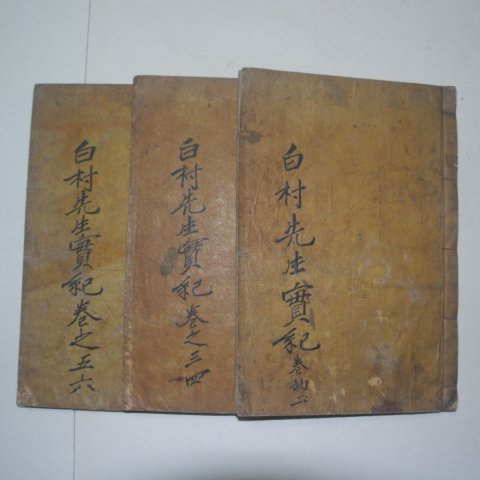 白村先生實紀 卷之二
白村先生實紀卷之三四
白村先生實紀卷之五六